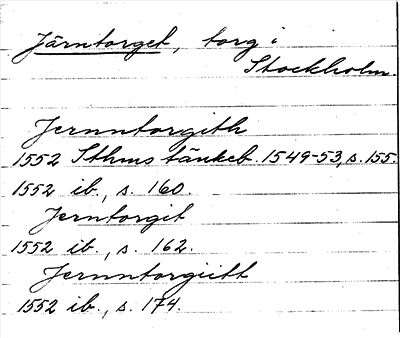 Järntorget, torg i
Stockholm.
Jernntorgith
1552 Sthms tänkeb. 1549-53, s. 155.
1552 ib., s. 160.
Jerntorgit
1552 ib., s. 162.
Jernntorgiitt
1552 ib., s. 174.